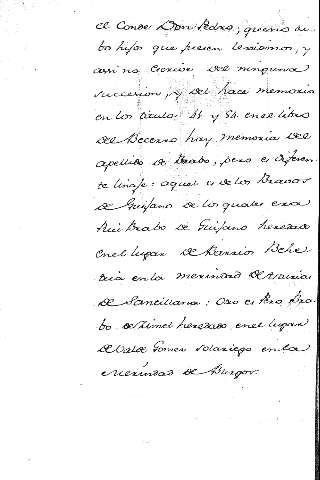 el Conde Don Pedro, que no dexo
bo hijos que fuesen legitimos, y
assi no escrive del ninguna
succession, y del hace memoria
en los titulos 45 y 54 en el libro
del Becerro hay memoria del
apellido de Brabo, pero es diferen-
te linaje: aquel es de los Bravos
de Guisano de los quales era
Rui Brabo de Guisano heredado
en el lugar de Barrios Behe
tria en la merindad de Asturias
de Santillana; Otro es Pero Bra
bo de Ximel heredado en el lugar
de Val de Gomez solariego en la
Merindad de Burgos.